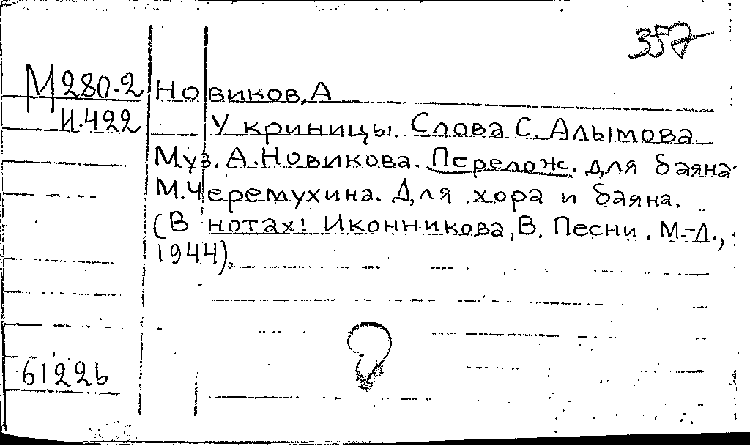 357
М280-2 Новиков, А
И.422 У криницы. Слова С. Алымова
Муз. А. Новикова. Перелож. для баяна
М. Черемухина. Для хора и баяна.
(В нотах: Иконникова, В. Песни. М.-Л.,
1944).
61226